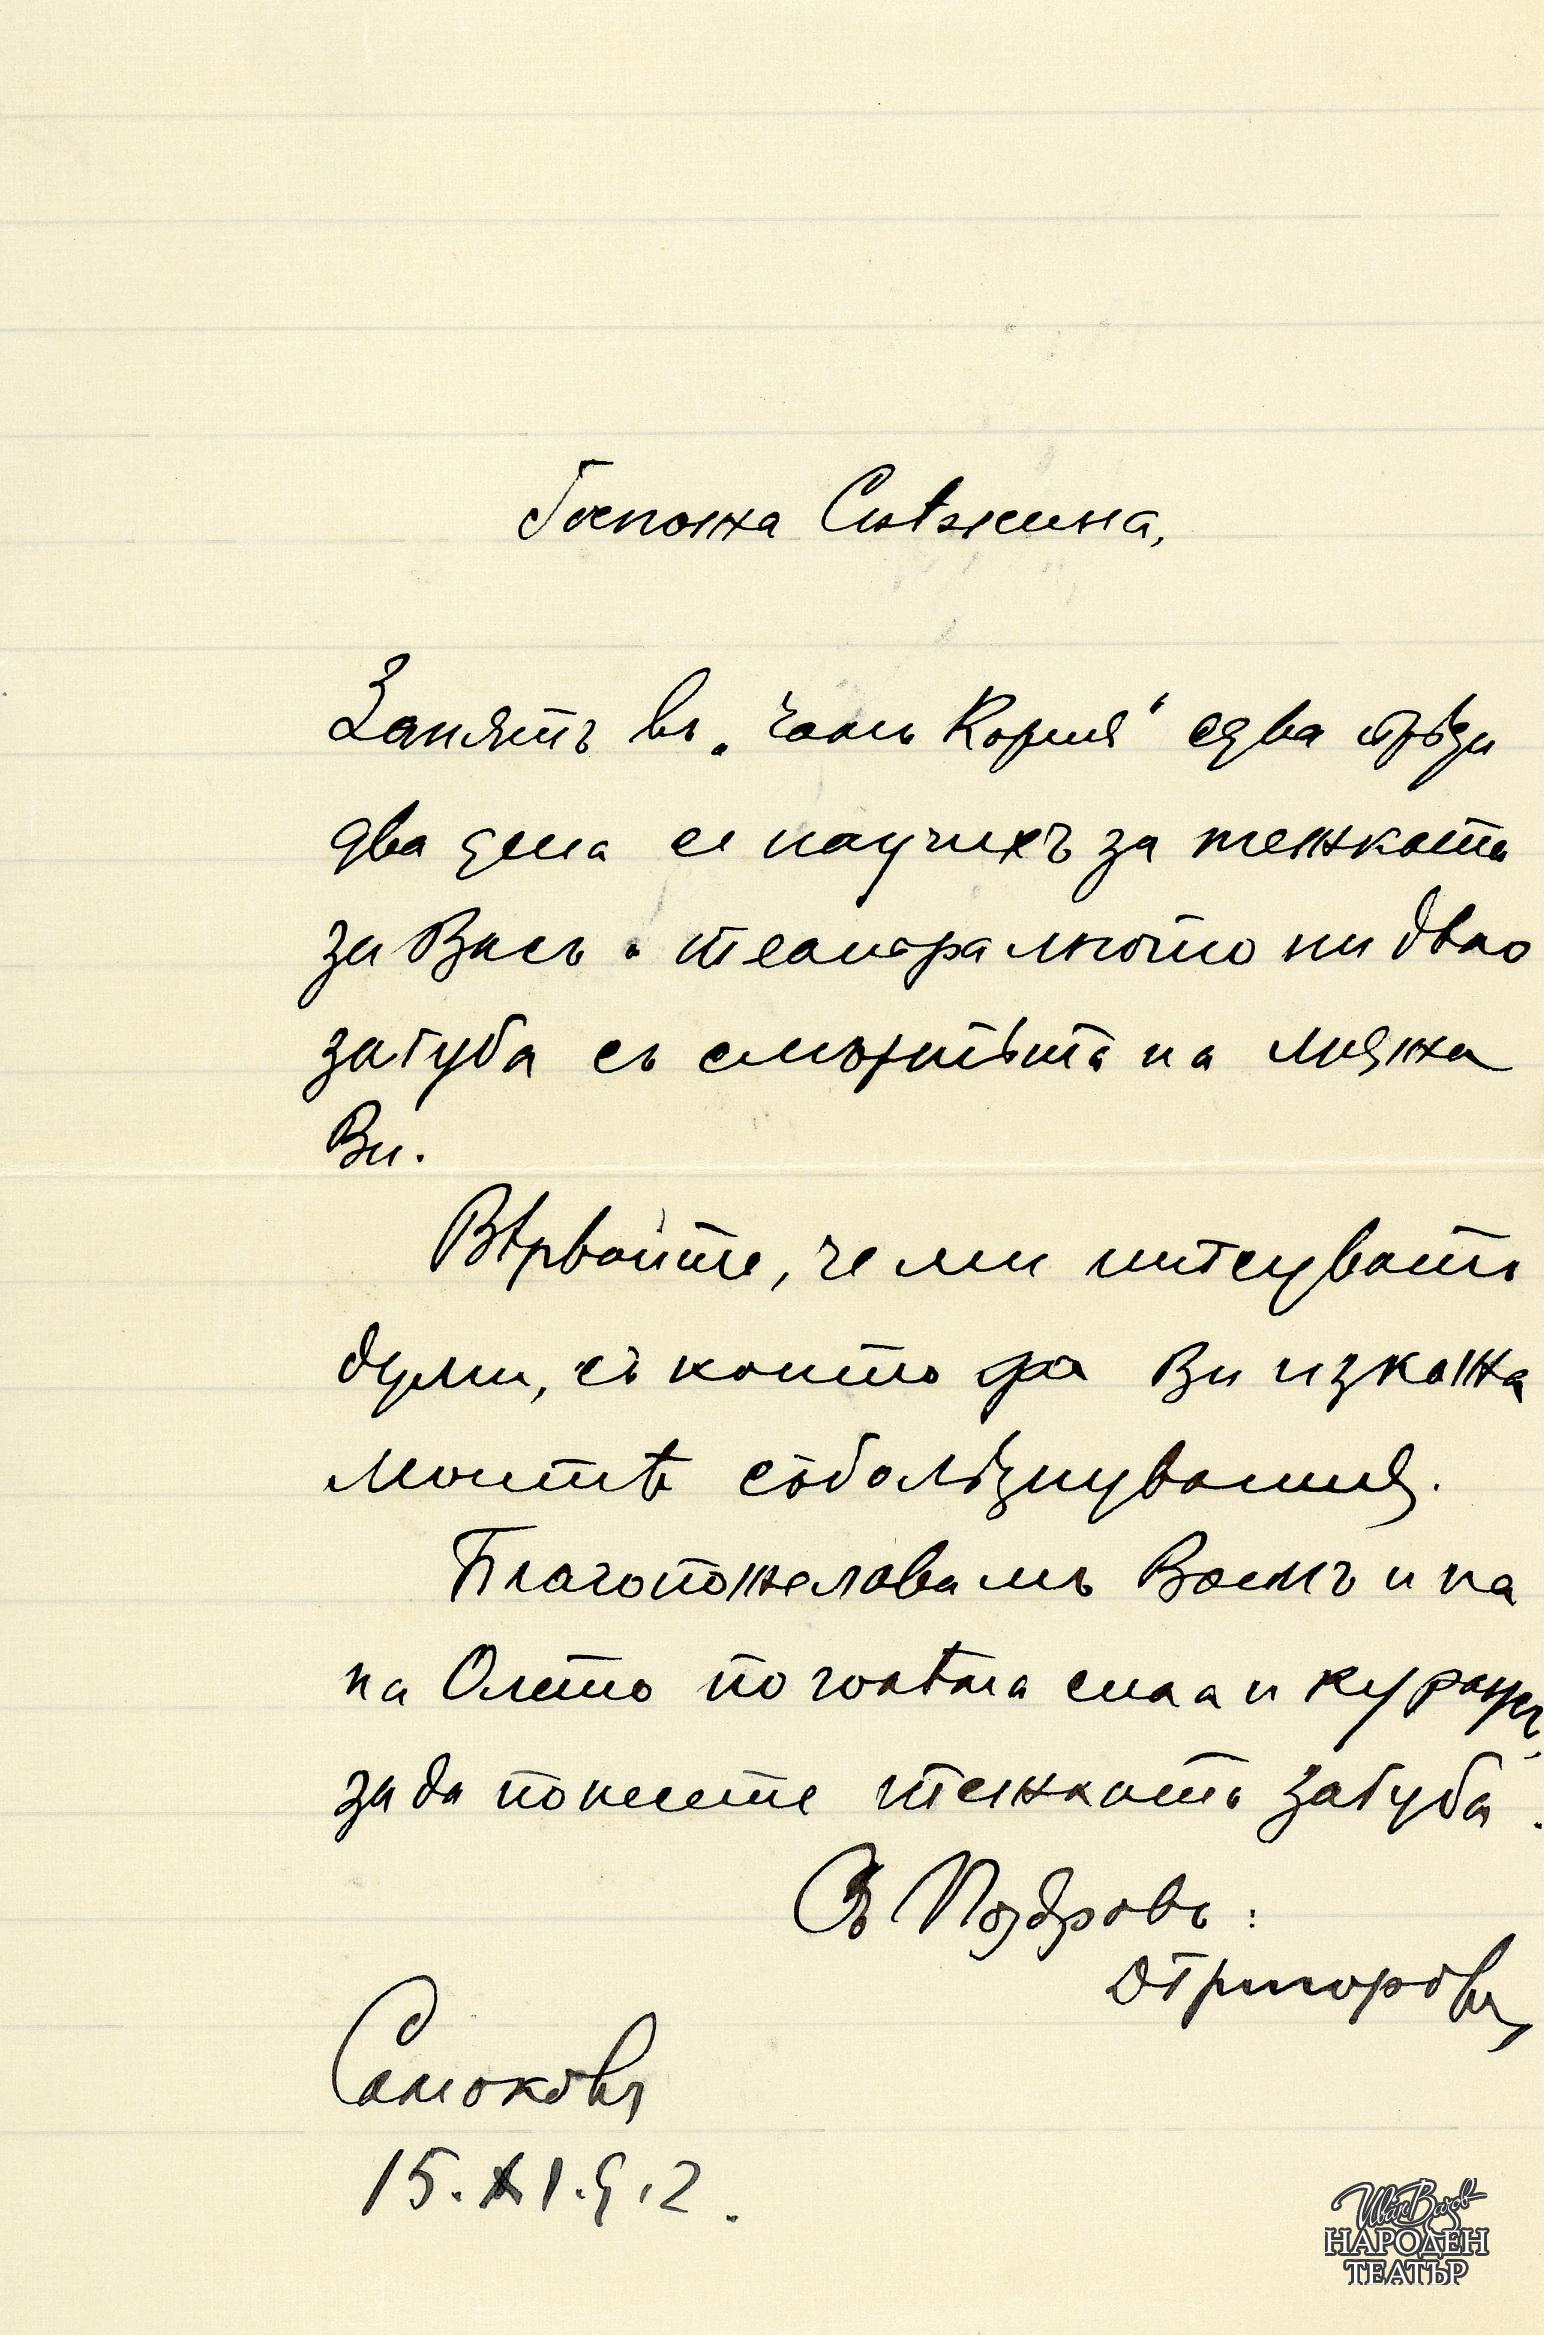 Госпожа Снѣжина,
Запятъ въ „Чамъ Кория“ едва прѣди
два дена се научихъ за тежката
за Васъ и театралното ни дѣло
загуба съ смъртьта на мѫжа
Ви.
Вѣрвайте, че ми липсуватъ
думи, съ които да Ви изкажа
моитѣ съболѣзнувания.
Благопожелавамъ Вамъ и на
на Олето по голѣма сила и куражъ,
за да понесете тежката загуба.
Съ Поздравъ:
ДГригоровъ
Самоковъ
15.XI.912.
Иван Вазов
НАРОДЕН
ТЕАТЪР